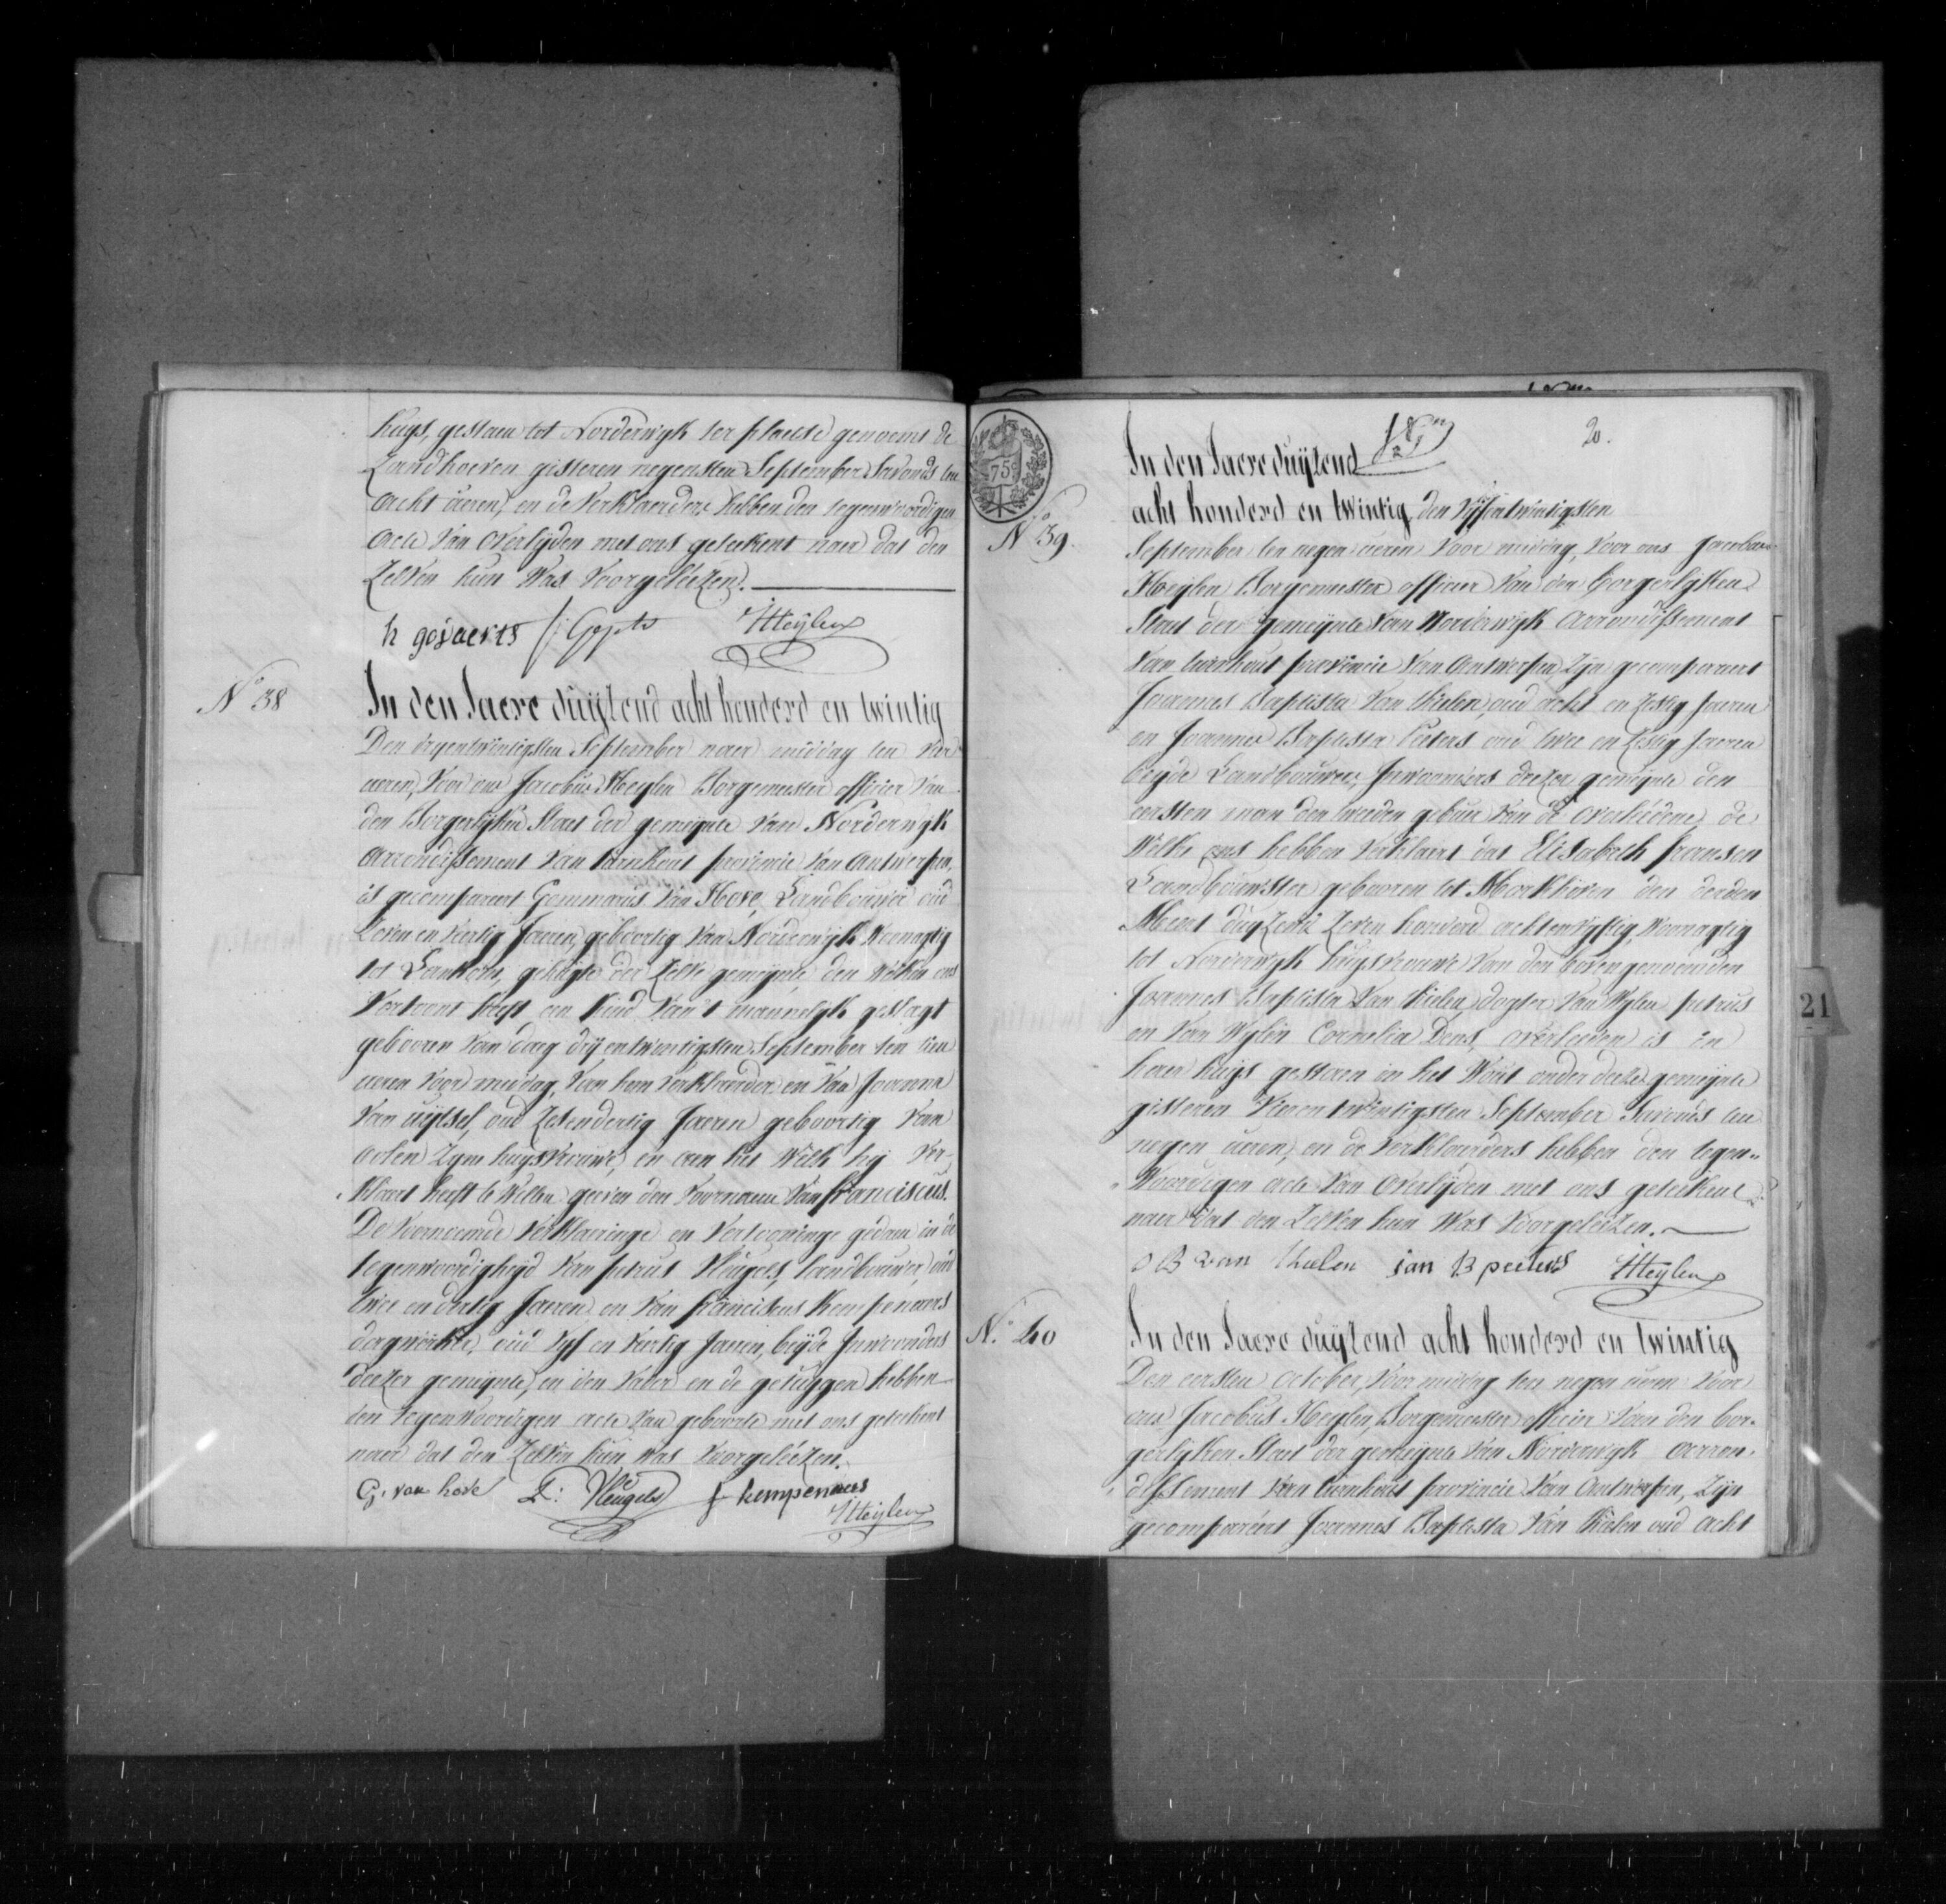 huys, gestaen tot Norderwyk ter plaetse genoemt de
Zandhoeven gisteren negensten September Savonds ten
acht ueren, en de Verklaerders hebben den tegenwoordigen
acte Van Overlyden met ons geteekent naer dat den
Zelven hun Was Voorgeleézen.
h govaerts J: Gepts JHeylen
N° 38
In den Jaere duyzend acht honderd en twintig
Den dryentwintigsten September naer middag ten Vier
ueren, Voor ons Jacobus Heylen Borgemeester officier Van
den Borgerlyken Staet der gemeynte Van Norderwyk
Arrondissement Van turnhout provincie Van Antwerpen,
is gecompareert Gommarus Van Hove, Landbouwer oud
Zeven en Veertig Jaeren, geboortig Van Norderwyk Woonagtig
tot gehugte der Zelve gemeynte, den Welken ons
Vertoont heeft een Kind Van 't mannelyk geslagt
gebooren Van daeg dryentwintigsten September ten tien
ueren Voor middag, Van hem Verklaerder en Van Joanna
Van uytsel, oud Zesendertig Jaeren geboortig Van
oolen Zyne huysvrouwe, en aen het Welk hy Ver-
klaert heeft te Willen geeven den Voornaeme Van franciscus.
De Voornoemde Verklaeringe en Vertooninge gedaen in de
tegenwoordigheyd Van petrus Vleugels, landbouwer, oud
twee en dertig Jaeren, en Van franciscus Kempenaers
dagwerker, oud Vyf en Veertig Jaeren, beyde Inwoonders
deezer gemeynte, en den Vader en de getuygen hebben
den tegenwoordigen acte Van geboorte met ons geteekent
naer dat den Zelven hun Was Voorgeleézen.
G. van hove P: Vleugels f kempenaers
JHeylen
75c
20.
In den Jaere duyzend
acht honderd en twintig, den Vyfentwintigsten
N° 39.
September ten negen ueren Voor middag, Voor ons Jacobus
Heylen Borgemeester officier Van den Borgerlyken
Staet der gemeynte Van Norderwyk Arrondissement
Van turnhout provincie Van Antwerpen, Zyn gecompareert
Joannes Baptista Van thielen, oud acht en Zestig Jaeren
en Joannes Baptista Peeters oud twee en Zestig Jaeren
beyde Landbouwers, Inwoonders deezer gemeynte den
eersten man den tweeden gebuer Van de Overledene, de
Welke ons hebben Verklaert dat Elisabeth fransen
Landbouwster gebooren tot Morkhoven den derden
Meert duyzend Zeven honderd achtenvyftig, Woonagtig
tot Norderwyk huysvrouwe Van den bovengenoemden
Joannes Baptista Van thielen, dogter Van Wylen petrus
en Van Wylen Cornelia Dens, overleeden is in
haer huys gestaen in het Wout onder deeze gemeynte
gisteren Vierentwintigsten September Savonds ten
negen ueren, en de Verklaerders hebben den tegen-
Woordigen acte Van Overlyden met ons geteekent
naer dat den Zelven hun Was Voorgeleézen.
J B van thielen jan B peeters JHeylen
N° 40
In den Jaere duyzend acht honderd en twintig
Den eersten October, Voor middag ten negen ueren Voor
ons Jacobus Heylen, Borgemeester officier Van den bor-
gerlyken Staet der gemeynte Van Norderwyk arron-
dissement Van turnhout provincie Van Antwerpen, Zyn
gecompareert Joannes Baptista Van thielen oud acht
21